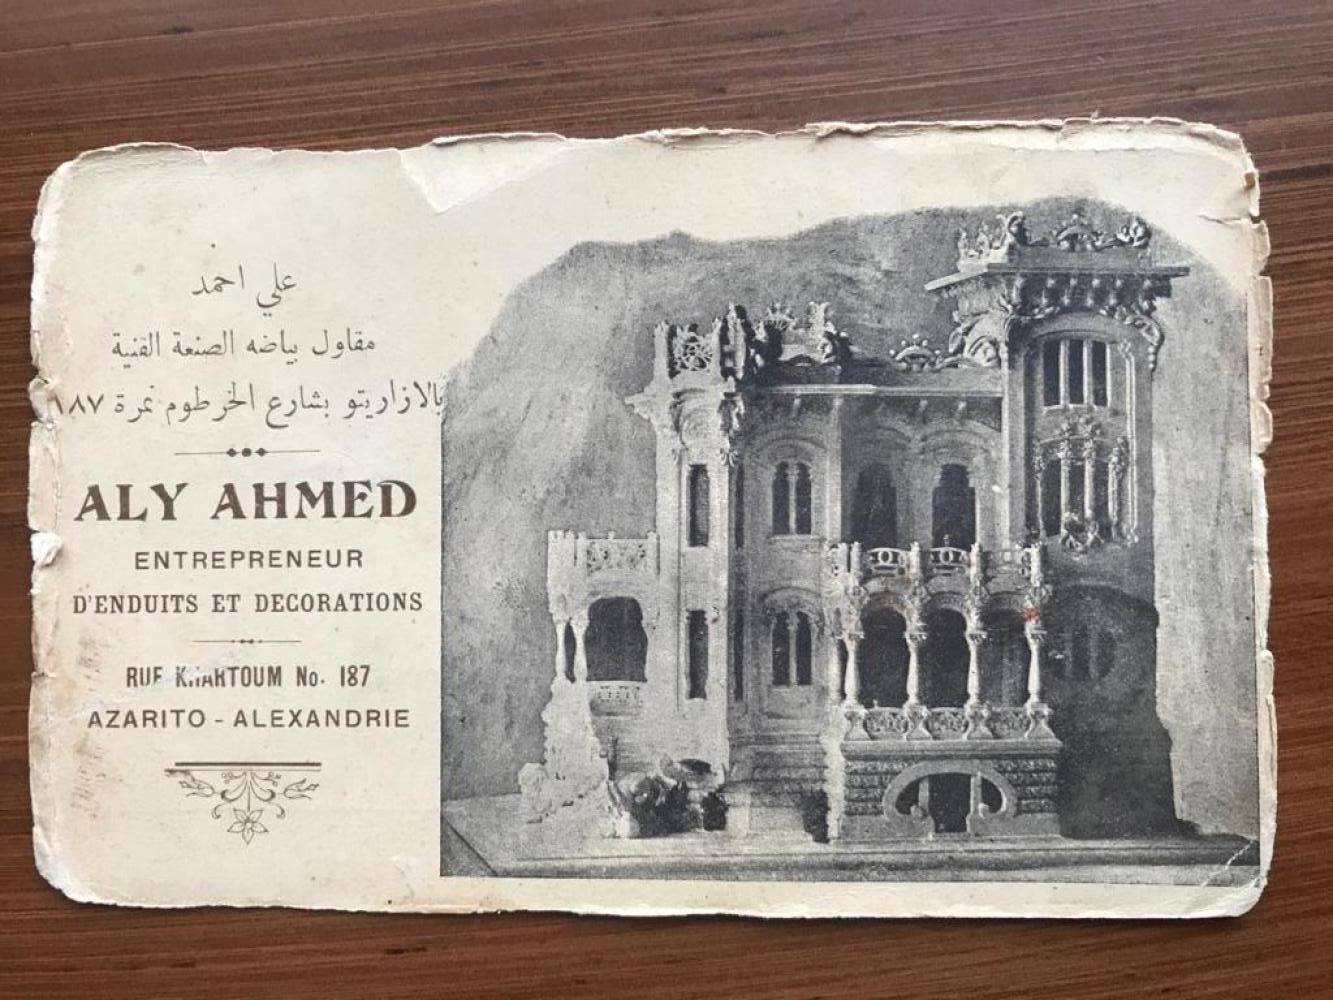 علي احمد
مقاول بياضه الصنعة الفنية
بالازاريتو بشارع الخرطوم نمرة ١٨٧
ALY AHMED
ENTREPRENEUR
D'ENDUITS ET DECORATIONS
RUE KHARTOUM No. 187
AZARITO - ALEXANDRIE